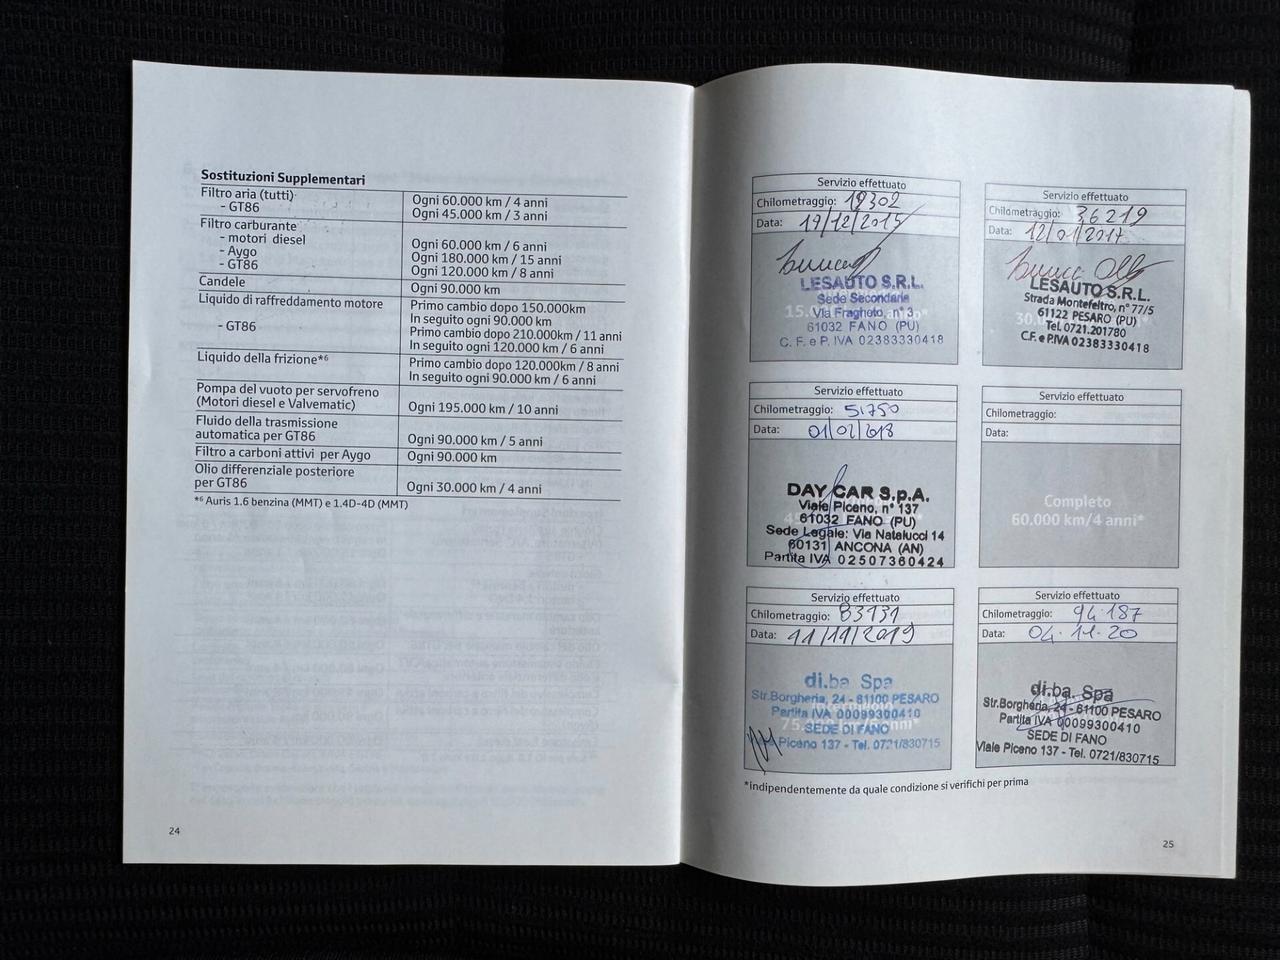 Sostituzioni Supplementari
Filtro aria (tutti) Ogni 60.000 km / 4 anni
- GT86 Ogni 45.000 km / 3 anni
Filtro carburante
- motori diesel Ogni 60.000 km / 6 anni
- Aygo Ogni 180.000 km / 15 anni
- GT86 Ogni 120.000 km / 8 anni
Candele Ogni 90.000 km
Liquido di raffreddamento motore Primo cambio dopo 150.000km
In seguito ogni 90.000 km
- GT86 Primo cambio dopo 210.000km / 11 anni
In seguito ogni 120.000 km / 6 anni
Liquido della frizione*6 Primo cambio dopo 120.000km / 8 anni
In seguito ogni 90.000 km / 6 anni
Pompa del vuoto per servofreno
(Motori diesel e Valvematic) Ogni 195.000 km / 10 anni
Fluido della trasmissione
automatica per GT86 Ogni 90.000 km / 5 anni
Filtro a carboni attivi per Aygo Ogni 90.000 km
Olio differenziale posteriore
per GT86 Ogni 30.000 km / 4 anni
*6 Auris 1.6 benzina (MMT) e 1.4D-4D (MMT)
24
Servizio effettuato
Chilometraggio: 19302
Data: 17/12/2015
LESAUTO S.R.L.
Sede Secondaria
Via Fragheto, n° 3
61032 FANO (PU)
C. F. e P. IVA 02383330418
Servizio effettuato
Chilometraggio: 36219
Data: 12/01/2017
LESAUTO S.R.L.
Strada Montefeltro, n° 77/5
61122 PESARO (PU)
Tel. 0721.201780
C.F. e P.IVA 02383330418
Servizio effettuato
Chilometraggio: 51750
Data: 01/02/2018
DAY CAR S.p.A.
Viale Piceno, n° 137
61032 FANO (PU)
Sede Legale: Via Natalucci 14
60131 ANCONA (AN)
Partita IVA 02507360424
Servizio effettuato
Chilometraggio:
Data:
Completo
60.000 km/4 anni*
Servizio effettuato
Chilometraggio: 83131
Data: 11/11/2019
di.ba Spa
Str.Borgheria, 24 - 61100 PESARO
Partita IVA 00099300410
SEDE DI FANO
Piceno 137 - Tel. 0721/830715
Servizio effettuato
Chilometraggio: 94.187
Data: 04.11.20
di.ba. Spa
Str.Borgheria, 24 - 61100 PESARO
Partita IVA 00099300410
SEDE DI FANO
Viale Piceno 137 - Tel. 0721/830715
*Indipendentemente da quale condizione si verifichi per prima
25